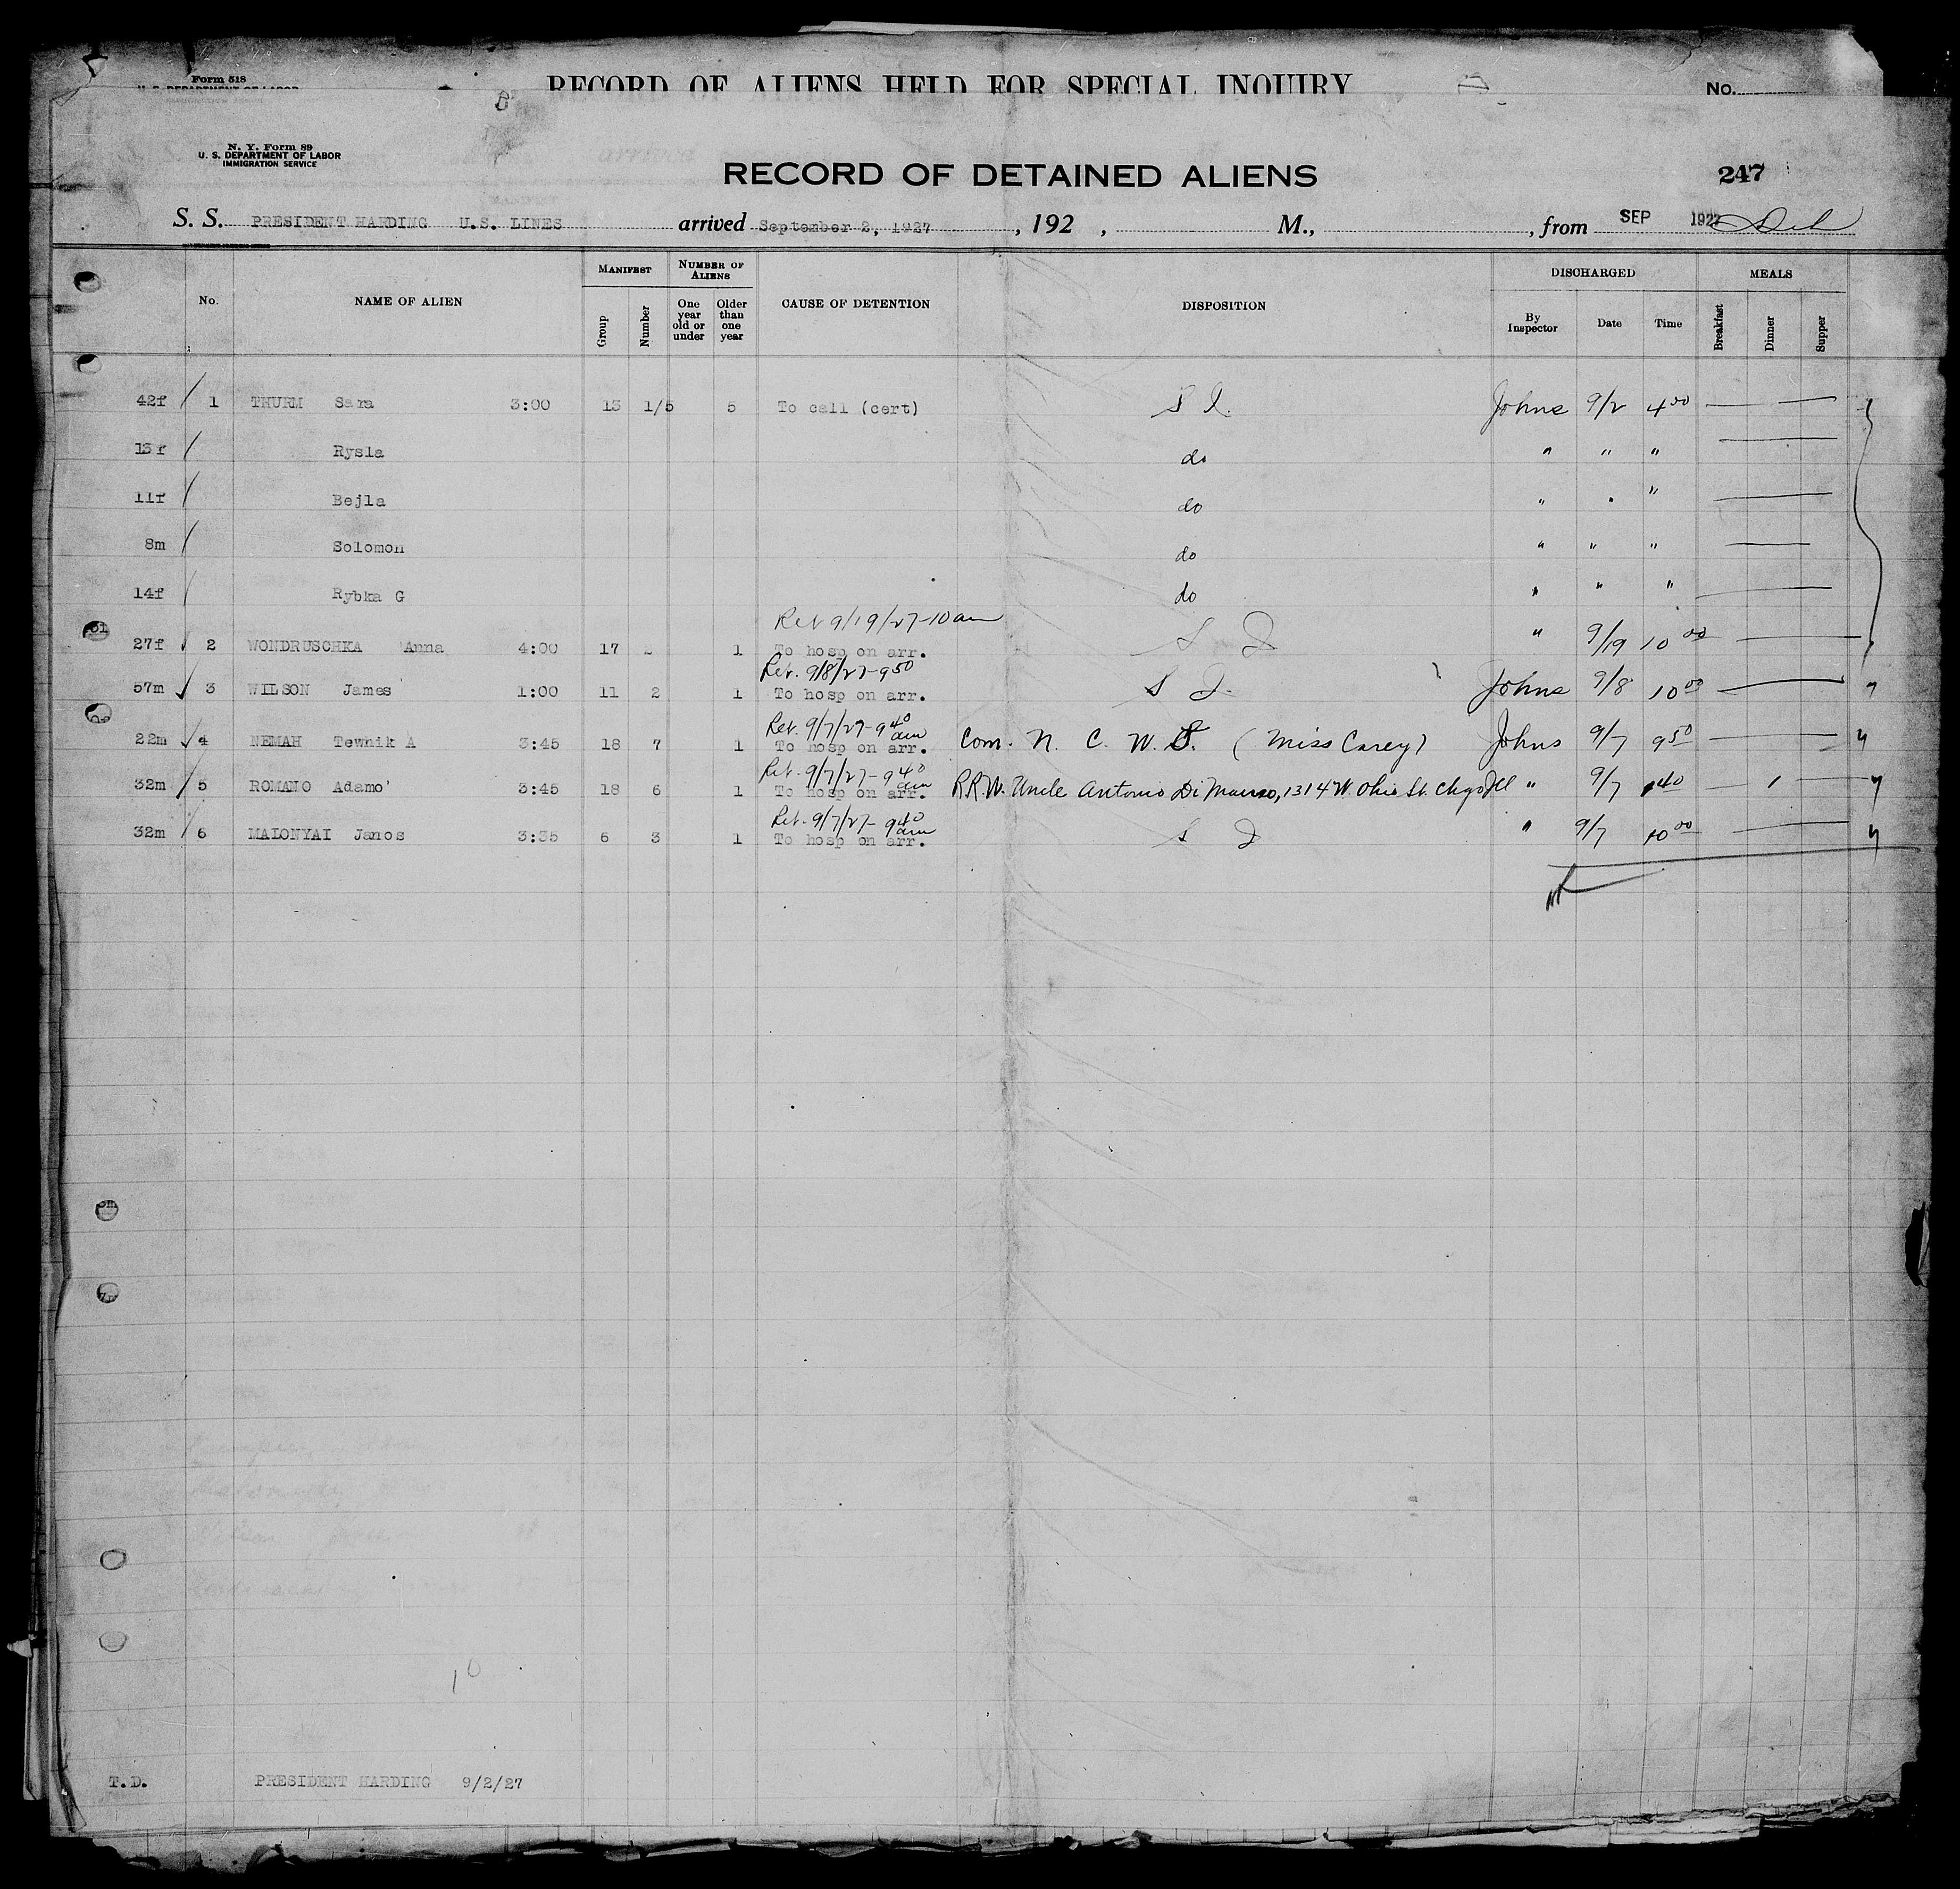 Form 518
U. S. DEPARTMENT OF LABOR
RECORD OF ALIENS HELD FOR SPECIAL INQUIRY
No.
N. Y. Form 89
U. S. DEPARTMENT OF LABOR
IMMIGRATION SERVICE
RECORD OF DETAINED ALIENS
247
S. S. PRESIDENT HARDING U.S. LINES arrived September 2, 1927 , 192 , M., , from SEP 1927
No. NAME OF ALIEN MANIFEST Group Number NUMBER OF ALIENS One year old or under Older than one year CAUSE OF DETENTION DISPOSITION DISCHARGED By Inspector Date Time MEALS Breakfast Dinner Supper
42f / 1 THURM Sara 3:00 13 1/5 5 To call (cert) S I. Johns 9/2 4 00
13f / Rysla do " " "
11f / Bejla do " " "
8m / Solomon do " " "
14f / Rybka G do " " "
Ret 9/19/27-10 am
27f 2 WONDRUSCHKA Anna 4:00 17 1 To hosp on arr. S I " 9/19 10 00
Ret. 9/8/27-9 50
57m 3 WILSON James 1:00 11 2 1 To hosp on arr. S I. Johns 9/8 10 00 "
Ret. 9/7/27-9 40 am
22m 4 NEMAH Tewhik A 3:45 18 7 1 To hosp on arr. Com. N. C. W. (Miss Carey) Johns 9/7 9 50 "
Ret. 9/7/27-9 40 am
32m / 5 ROMANO Adamo 3:45 18 6 1 To hosp on arr. R.R.W. Uncle Antonio Di Mauro, 1314 W. Ohio St. Chgo Ill " 9/7 1 40 1 "
Ret. 9/7/27-9 40 am
32m / 6 MALONYAI Janos 3:35 6 3 1 To hosp on arr. S I " 9/7 10 00 "
10
T.D. PRESIDENT HARDING 9/2/27